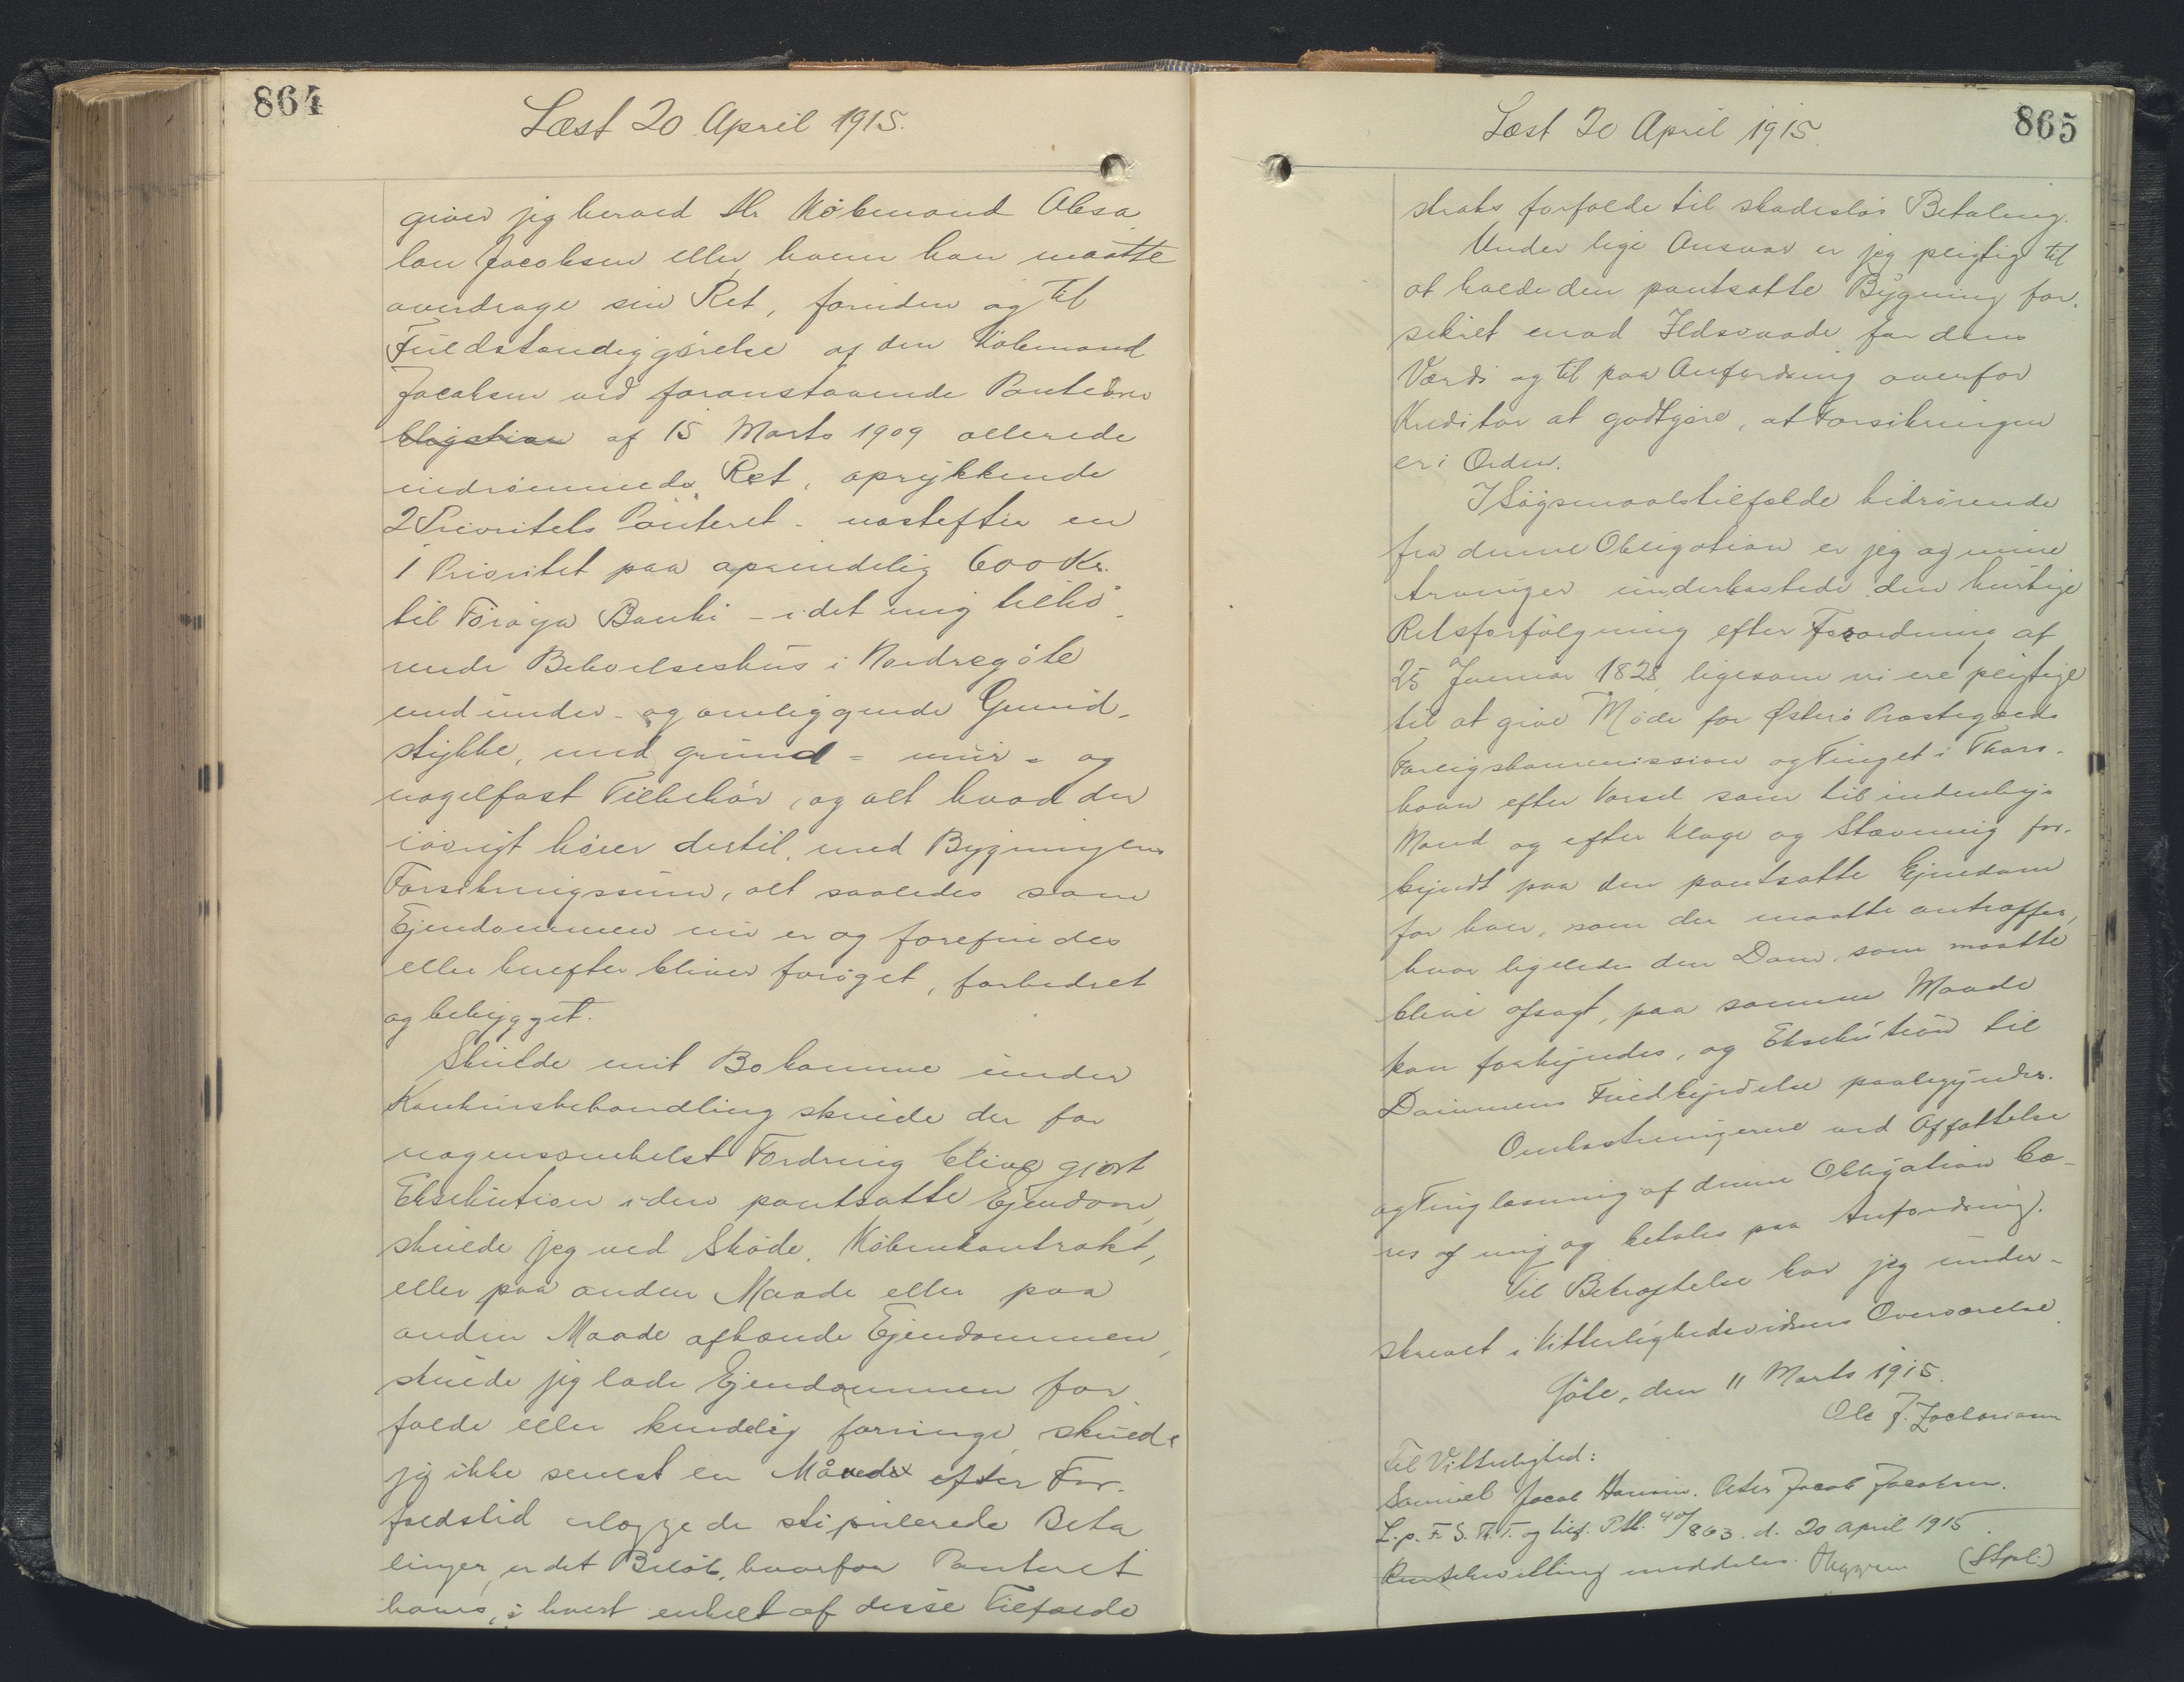 864
Læst 20 April 1915.
giver jeg herved Hr Købmand Absa
lon Jacobsen eller hvem han maatte
overdrage sin Ret, foruden og til
Fuldstændiggørelse af den Købmand
Jacobsen ved foranstaaende Pantebrev
bligation af 15 Marts 1909 allerede
indrømmede Ret, oprykkende
2 Prioritets Panteret - næstefter en
1 Prioritet paa oprindelig 600 Kr.
til Føroya Banki - i det mig tilhø-
rende Beboelseshus i Nordregøte
med under- og omliggende Grund-
stykke, med grund- mur- og
nagelfast Tilbehør, og alt hvad der
iøvrigt hører dertil, med Bygningens
Forsikringssum, alt saaledes som
Ejendommen nu er og forefindes
eller herefter bliver forøget, forbedret
og bebygget.
Skulde mit Bo komme under
Konkursbehandling skulde der for
nogensomhelst Fordring blive gjort
Eksekution i den pantsatte Ejendom,
skulde jeg ved Skøde, Købekontrakt,
eller paa anden Maade eller paa
anden Maade afhænde Ejendommen,
skulde jeg lade Ejendommen for
falde eller kendelig forringe, skulde
jeg ikke senest en Måned efter For-
faldstid erlægge de stipulerede Beta
linger, er det Beløb, hvorfor Panteret
haves, i hvert enkelt af disse Tilfælde
865
Læst 20 April 1915.
straks forfalde til skadesløs Betaling.
Under lige Ansvar er jeg pligtig til
at holde den pantsatte Bygning for-
sikret mod Ildsvaade for dens
Værdi og til paa Anfordring overfor
Kreditor at godtgøre, at Forsikringen
er i Orden.
I Søgsmaalstilfælde hidrørende
fra denne Obligation er jeg og mine
Arvinger underkastede den hurtige
Retsforfølgning efter Forordning af
25 Januar 1828, ligesom vi ere pligtige
til at give Møde for Østerø Præstegælds
Forligskommission og Tinget i Thors-
havn efter Varsel som til indenbys
Mand og efter Klage og Stævning for-
kyndt paa den pantsatte Ejendom
for hver, som der maatte antræffes,
hvor ligeledes den Dom, som maatte
blive afsagt, paa samme Maade
kan forkyndes, og Eksekution til
Dommens Fuldbyrdelse paabegyndes.
Omkostningerne ved Affattelse
og Tinglæsning af denne Obligation bæ-
res af mig og betales paa Anfordring.
Til Bekræftelse har jeg under-
skrevet i Vitterlighedsvidners Overværelse.
Gøte, den 11 Marts 1915.
Ole J. Zachariasen
Til Vitterlighed:
Samuel Jacob Hansen. Peter Jacob Jacobsen.
L. p. F. S. Th. T. og tilf. Ptb. 40/863. d. 20 april 1915.
Rentebevilling meddeles. (Stpl.)